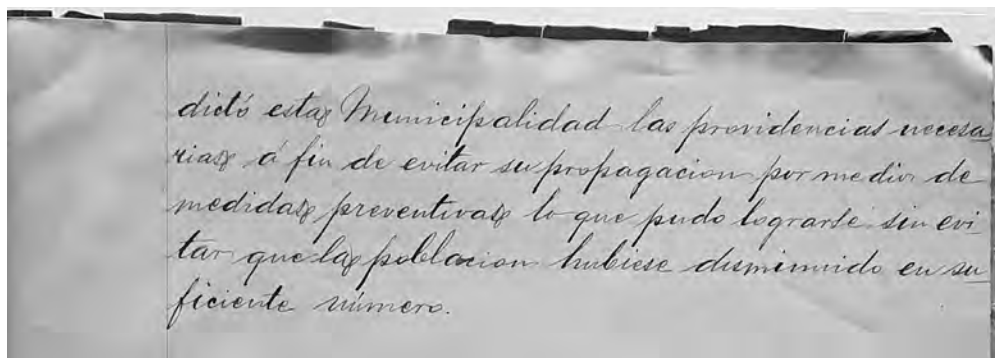 dictó esta Municipalidad las providencias necesa
rias á fin de evitar su propagacion por medio de
medidas preventivas lo que pudo lograrse sin evi
tar que la poblacion hubiese disminuido en su
ficiente número.